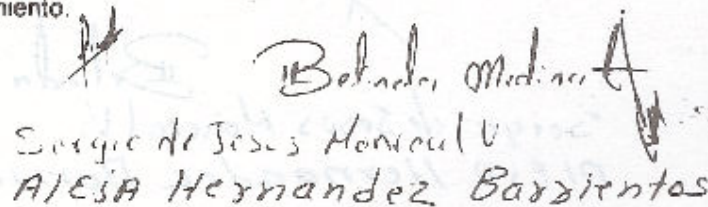 miento.
Belinda Medina A
Sergio de Jesus Monreal V
AlEjA Hernandez Barrientos